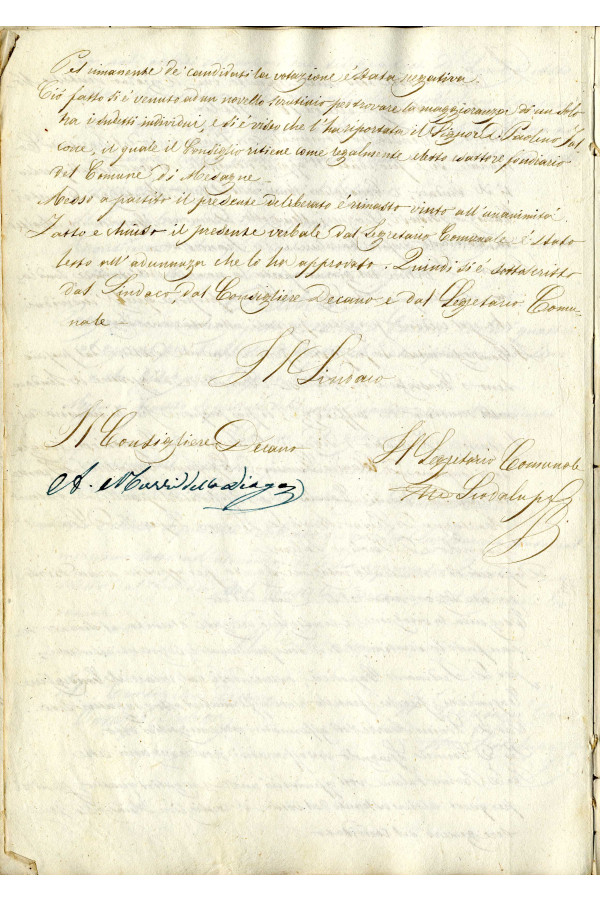 Pel rimanente de' candidati la votazione è stata negativa.
Ciò fatto si è venuto ad un novello scrutinio per trovare la maggioranza di un solo
tra i sudetti individui, e si è visto che l'ha riportata il Signor Paolino Fal-
cone, il quale il Consiglio ritiene come legalmente eletto esattore fondiario
del Comune di Mesagne.
Messo a partito il predente deliberato è rimasto vinto all'unanimità.
Fatto e chiuso il predente verbale dal Segretario Comunale è stato
letto all'adunanza che lo ha approvato. Quindi si è sottoscritto
dal Sindaco, dal Consigliere Decano e dal Segretario Comu-
nale.
Il Sindaco
Il Consigliere Decano
Il Segretario Comunale
A.